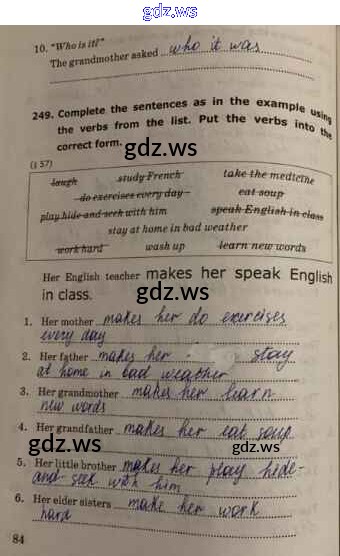 gdz.ws
10. "Who is it?"
The grandmother asked who it was
gdz.ws
249. Complete the sentences as in the example using
the verbs from the list. Put the verbs into the
correct form.
gdz.ws
(§ 57)
laugh study French take the medicine
do exercises every day eat soup
play hide and seek with him speak English in class
stay at home in bad weather
work hard wash up learn new words
Her English teacher makes her speak English
in class.
gdz.ws
1. Her mother makes her do exercises
every day
2. Her father makes her stay
at home in bad weather
3. Her grandmother makes her learn
new words
4. Her grandfather makes her eat soup
gdz.ws gdz.ws
5. Her little brother makes her play hide-
and-seek with him
6. Her elder sisters make her work
hard
84
gdz.ws